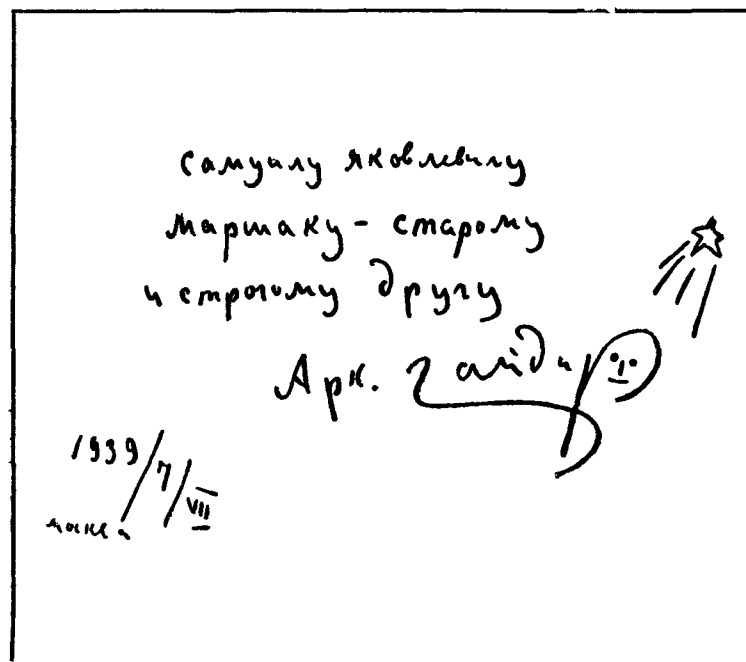 Самуилу Яковлевичу
Маршаку - старому
и строгому другу
Арк. Гайдар
1939/7/VII
Москва